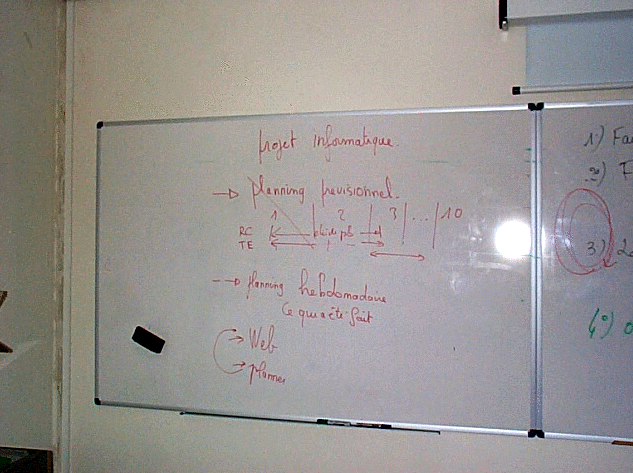 projet informatique.
→ planning previsionnel.
1 2 3 ... 10
RC
TE
→ planning hebdomadaire
Ce qui a été fait
Web
planner
1) Fa
2) F
3)
4°)